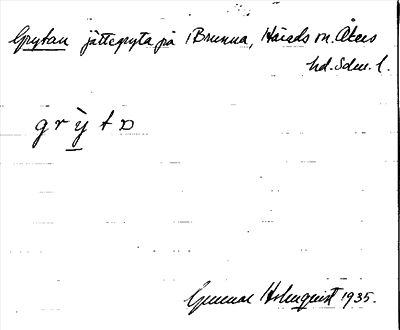 Grytan jättegryta på Brunna, Härads sn. Åkers
hd. Sdm. l.
g r ỳ t ɒ
Gunnar Holmquist 1935.